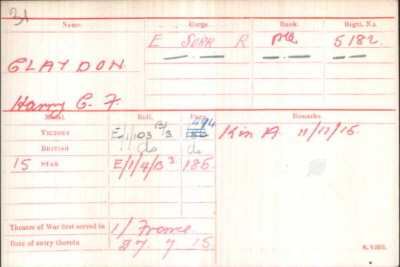 31
Name. Corps. Rank. Regtl. No.
E Surr R Pte 5182.
CLAYDON
Harry C. F.
Medal. Roll. Page. Remarks.
VICTORY E/1/103 B/3 494 Kin A 11/11/15.
BRITISH do do
15 STAR E/1/4/B3 185.
Theatre of War first served in 1/ France
Date of entry therein 27. 7 15